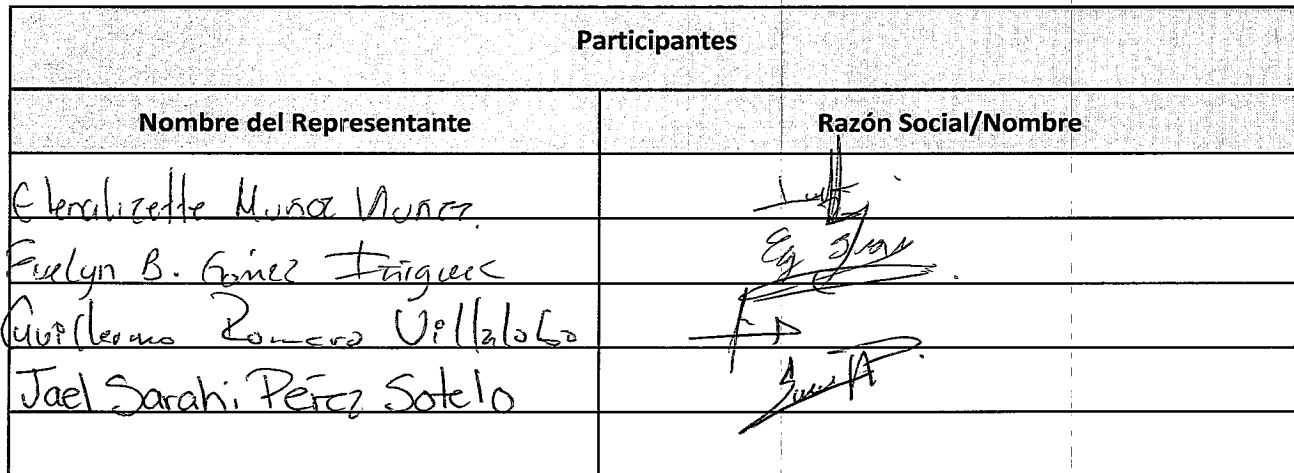 Participantes
Nombre del Representante Razón Social/Nombre
Elenalizette Muñoz Nuñez
Evelyn B. Gómez Iñiguez
Guillermo Romero Villalobo
Jael Sarahi Pérez Sotelo